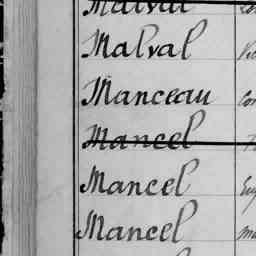 Malval
Malval
Manceau
Mancel
Mancel
Mancel